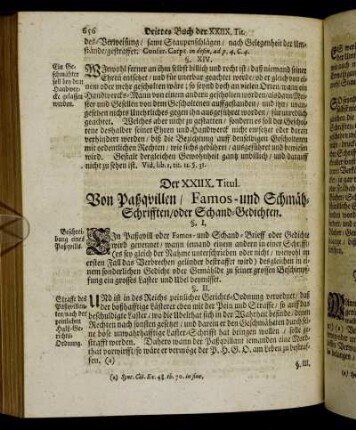 656 Drittes Buch der XXIIX. Tit.
des-Verweisung/ samt Staupenschlägen/ nach Gelegenheit der Um-
stände/gestraffet.
§. XIV.
Ein Ge-
schmähter
soll bey dem
Handwer-
cke gelassen
werden.
Wiewohl ferner an ihm selbst billich und recht ist/ daß niemand seiner
Ehren entsetzet/ und für unerbar geachtet werde/ ob er gleich von ei-
nem oder mehr gescholten wäre; so ist jedoch an vielen Orten/ wann ein
Handwercks-Mann von einem andern gescholten worden/
und Gesellen von dem Gescholtenen auffgestanden/ und ihn/
gesehen nichts Unehrliches auf ihn ausgeführet worden/ für unredlich
geachtet. Welches aber nicht zu gestatten/ sondern es soll der Gescholte-
ne deshalber seiner Ehren und Handwerck nicht entsetzet oder daran
verhindert werden/ biß die Bezüchung auff denselbigen Gescholtenen
mit ordentlichen Rechten/ wie sichs gebühret/ ausgeführet und bewiesen
wird. Gestalt dergleichen Gewohnheit gantz unbillich/ und darauf
nicht zu sehen ist.
Der XXIIX. Titul.
Von Paßqvillen/ Famos- und Schmäh-
Schrifften/ oder Schand-Gedichten.
§. I.
Beschrei-
bung eines
Paßqvills.
Ein Paßqvill oder Famos- und Schand-Brieff oder Gedichte
wird genennet/ wann iemand einem andern in einer Schrifft/
(es sey gleich der Nahme unterschrieben oder nicht/ wiewohl im
ersten Fall das Verbrechen gelinder bestraffet wird) desgleichen in ei-
nem sonderlichen Gedicht oder Gemählde zu seiner grossen Beschimpf-
fung ein grosses Laster und Ubel beymisset.
§. II.
Straffe des
nach der
peinlichen
Halß-Ge-
richts-
Ordnung.
Und ist in des Reichs peinlicher Gerichts-Ordnung verordnet/ daß
der boßhafftige Lästerer eben mit der Pein und Straffe/ so auff das
beschuldigte Laster/ wo die Ubelthat sich in der Wahrheit befände/ denen
Rechten nach solte gesetzet/ und darein er den Geschmäheten durch sei-
ne böse unwahrhafftige Laster-Schrifft hat bringen wollen/ solle ge-
strafft werden. Dahero wann der Paßqvillant iemanden eine
vorwirfft/ so wäre er vermöge der P. H. G. O. am Leben zu bestraf-
fen. (a)
§. III.